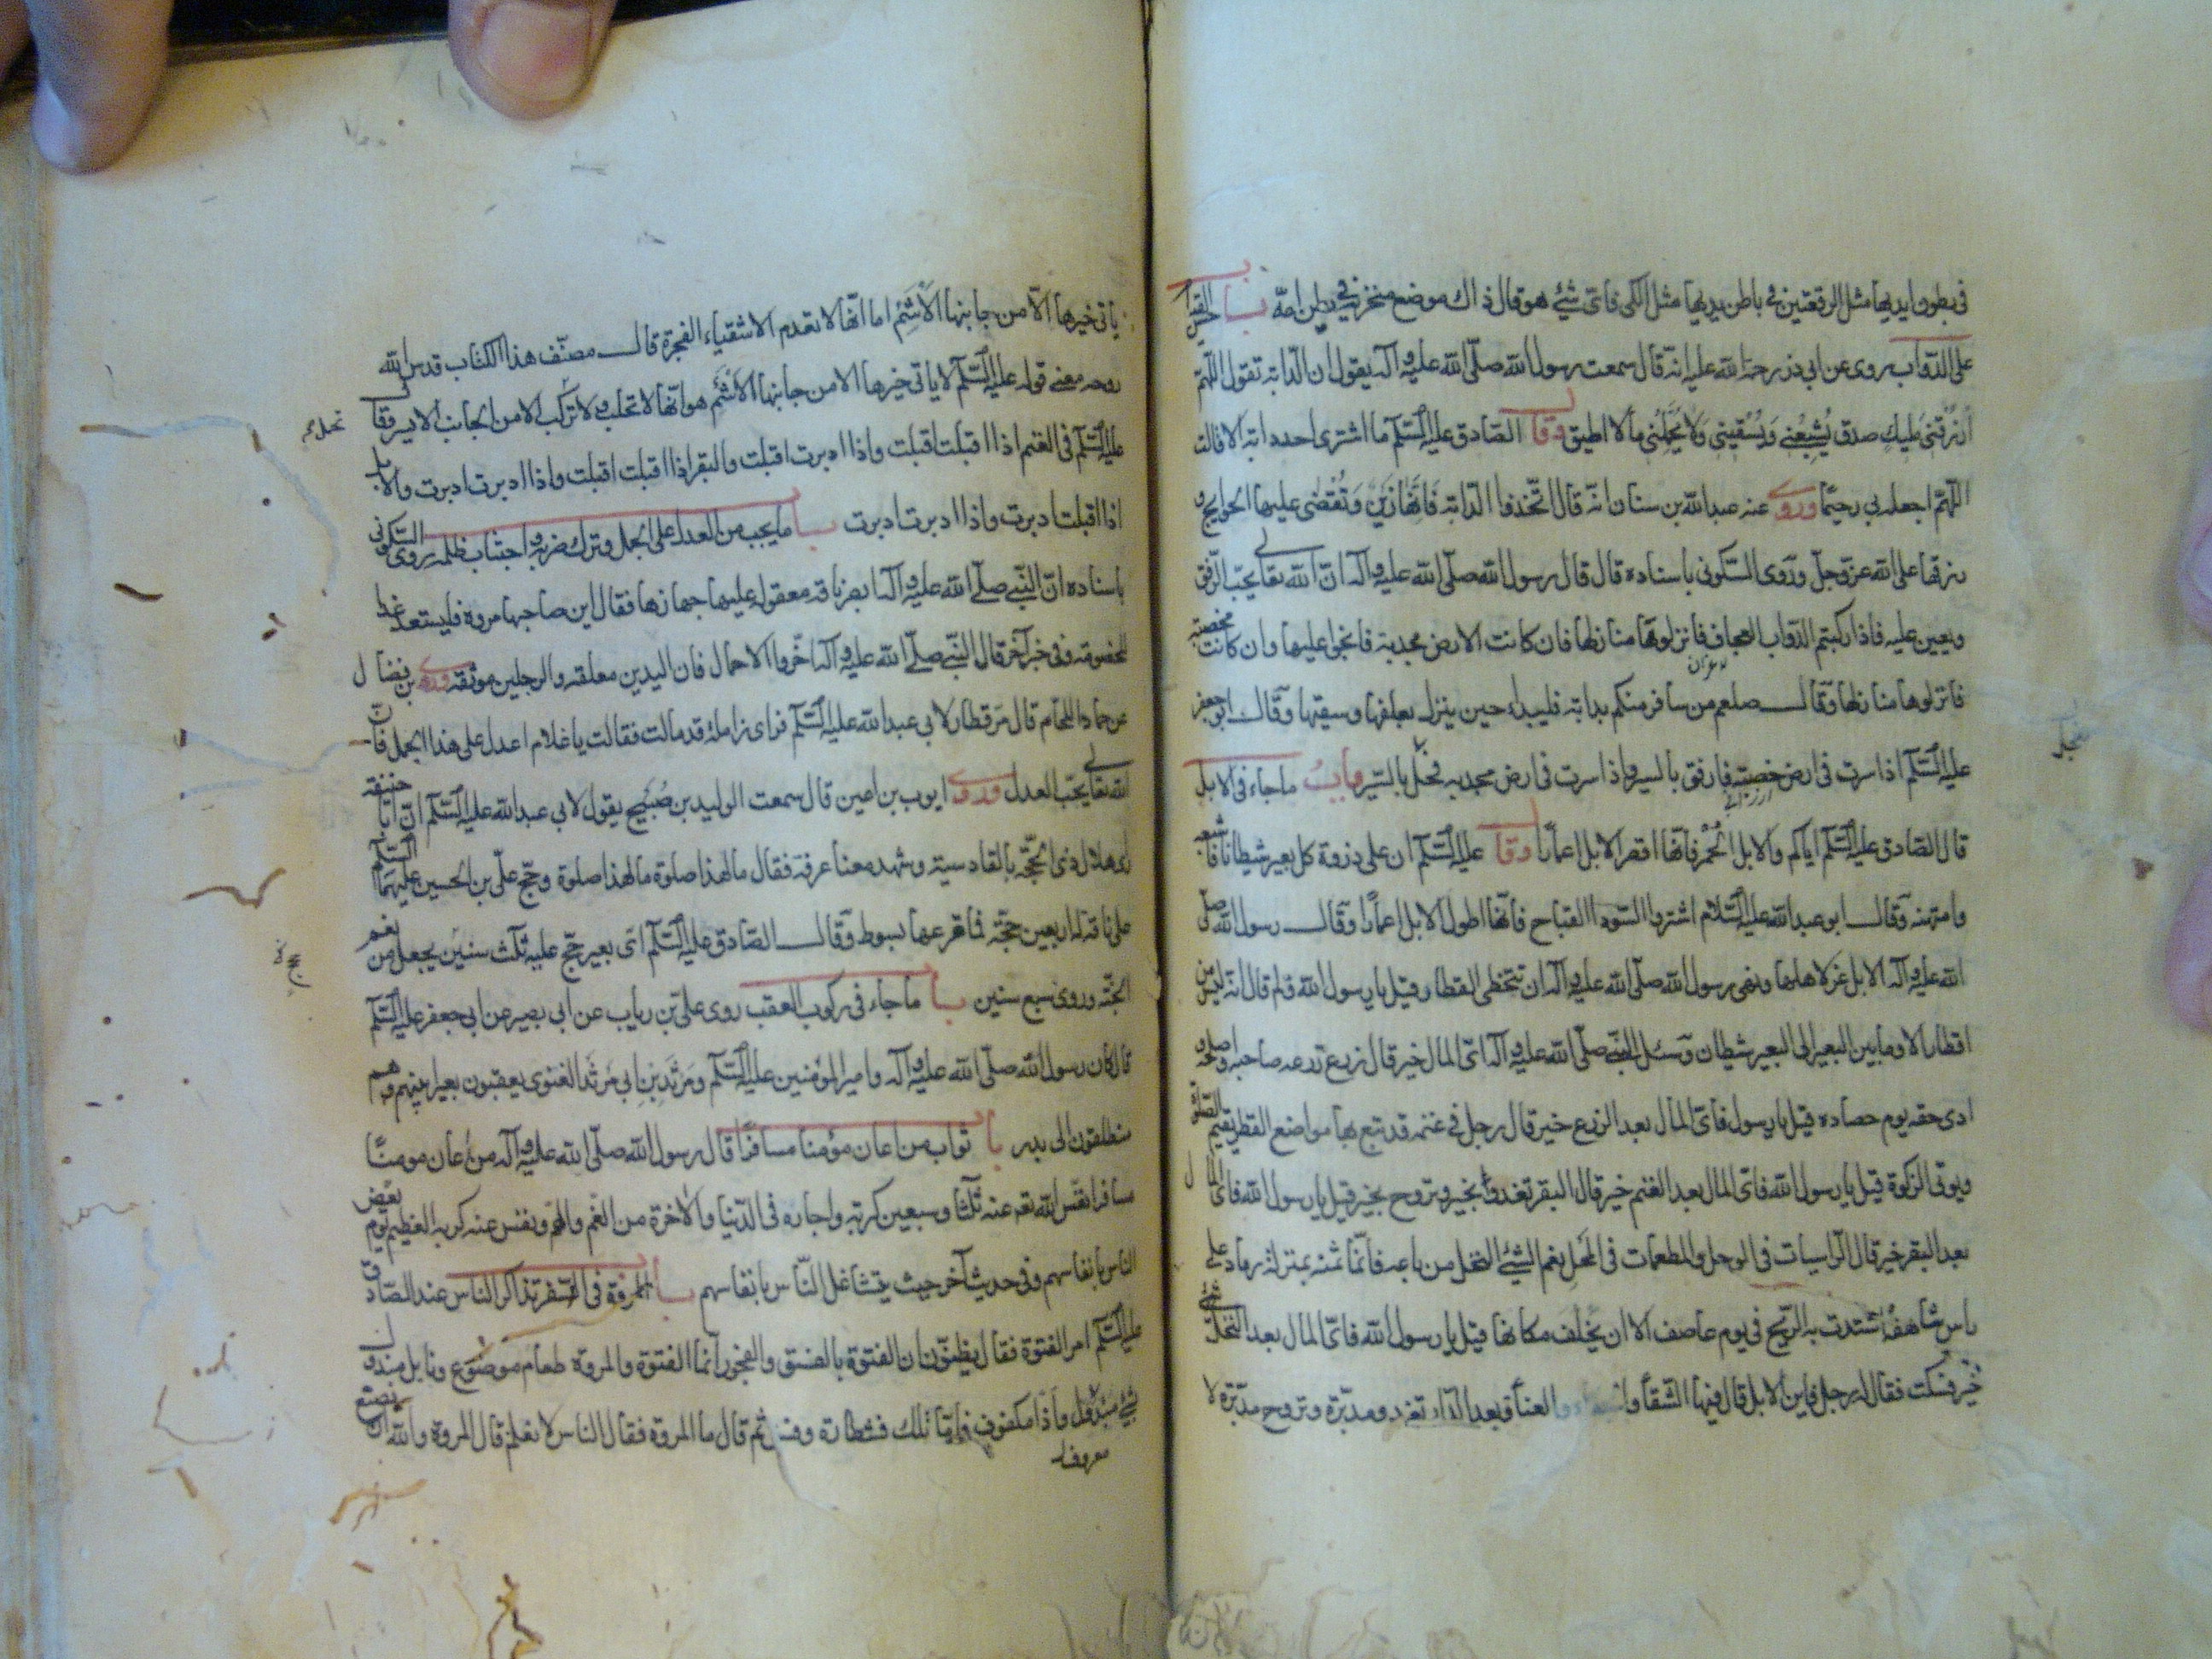 في بطون ايديها مثل الرقعتين في باطن يديها مثل الكي فاى شئ هو قال ذاك موضع منخريه في بطن امّه باب حسن القيام
على الدّوابّ روى عن ابي ذر رحمة الله عليه انّه قال سمعت رسول الله صلّى الله عليه وآله يقول ان الدّابة تقول اللهمّ
ارزقني مليك صدق يُشبِعُني وَيُسْقيني وَلا يُحَمِّلُني مالا اطيق وقا الصّادق عليه السّلم ما اشترى احد دابة الا قالت
اللّهمّ اجعله بي رحيمًا وروى عنه عبد الله بن سنان انه قال اتّخذوا الدّابة فَاِنّها زَيْن وَتُقْضٰى عليها الحوايج و
رزقها على الله عزّ وجلّ وروى السّكوني باسناده قال قال رسول الله صلّى الله عليه وآله انّ الله تعالى يحبّ الرّفق
ويعين عليه فاذا ركبتم الدّواب العجاف فانزلوها منازلها فان كانت الارض مجدبة فانجوا عليها وان كانت مخصبة
فانزلوها منازلها وقال صلعم من سافر منكم بدابة فليبداء حين ينزل بعلفها وسقيها وقال ابو جعفر
عليه السّلم اذا سرت في ارض خصبة فارفق بالسير واذا سرت في ارض مجدبه فعجّل بالسّير باب ما جاء في الابل
قال الصّادق عليه السّلم اياكم والابل الحُمْر فانّها اقصر الابل اعمارًا وقا عليه السّلم ان على ذروة كل بعير شيطانا فاشبعه
وامتهنه وقال ابو عبد الله عليه السّلام اشتروا السّود القباح فانّها اطول الابل اعمارًا وقال رسول الله صلّى
الله عليه وآله الابل عزّ لاهلها ونهى رسول الله صلّى الله عليه وآله ان تتخطى القطار وقيل يا رسول الله ولم قال انه ليس من
اقطار الا وما بين البعير الى البعير شيطان وسئل النّبي صلّى الله عليه وآله اىّ المال خير قال زرع زرعه صاحبه واصلحه و
ادى حقه يوم حصاده قيل يا رسول فاىّ المال بعد الزرع خير قال رجل في غنمه قد تبع بها مواضع القطر يقيم الصّلوة
ويوتى الزكوة قيل يا رسول الله فاىّ المال بعد الغنم خير قال البقر تغدوا بخير وتروح بخير قيل يا رسول الله فاىّ المال
بعد البقر خير قال الرّاسيات في الوحل والمطعمات في المَحْل نعم الشّئ النخل من باعه فانّما ثمنه بمنزلة رماد على
راس شاهق اشتدت به الرّيح في يوم عاصف الا ان يخلف مكانها قيل يا رسول الله فاىّ المال بعد النّخل
خير فسكت فقال له رجل فاين الابل قال فيها الشّقاء والعناء وبعد الدّار تغدو مدبّرة وتروح مدبّرة لا
ياتى خيرها الّا من جانبها الاَشئم اما انّها لا تعدم الاشقياء الفجرة قال مصنّف هذا الكتاب قدس الله
روحه معنى قوله عليه السّلم لا ياتى خيرها الا من جانبها الاشئم هو انّها لا تحلب ولا تركب الا من الجانب الايسر وقا
عليه السّلم في الغنم اذا اقبلت اقبلت واذا ادبرت اقبلت والبقر اذا اقبلت اقبلت واذا ادبرت ادبرت والابل
اذا اقبلت ادبرت واذا ادبرت ادبرت باب ما يجب من العدل على الجمل وترك ضربه واجتناب ظلمه روى السّكونى
باسناده انّ النّبي صلّى الله عليه وآله ابصر ناقة معقولة عليها جهازها فقال اين صاحبها مروه فليستعد غدا
للخصومة وفي خبر آخر قال النّبي صلّى الله عليه وآله اخّروا الاحمال فان اليدين معلقه والرجلين موثقه وروى بن فضال
عن حماد اللحّام قال مَر قطار لابي عبد الله عليه السّلم فراى زاملة قد مالت فقالت يا غلام اعدل على هذا الجمل فان
الله تعالى يحبّ العدل وروى ايوب بن اعين قال سمعت الوليد بن صُبَيح يقول لابي عبد الله عليه السّلم انّ ابا حنيفه
راى هلال ذى الحجّة بالقادسية وشهد معنا عرفة فقال ما لهذا صلوة ما لهذا صلوة وحج علّي بن الحسين عليهما السّلم
على ناقة له اربعين حجّة فما قرعها بسوط وقال الصّادق عليه السّلم اى بعير حجّ عليه ثلث سنين يجعل من نعم
الجنّة وروى سبع سنين باب ما جاء في ركوب العقب روى على بن رياب عن ابى بصير عن ابى جعفر عليه السّلم
قال كان رسول الله صلّى الله عليه وآله وامير المؤمنين عليه السّلم ومَرثَد بن ابي مَرثَد الغنوى يعقبون بعيرا بينهم وهم
منطلقون الى بدر باب ثواب من اعان مؤمنا مسافرًا قال رسول الله صلّى الله عليه وآله من اعان مومنًا
مسافرا نفّس الله عنه ثلثا وسبعين كربة واجاره في الدّنيا والاخرة من الغّم والهمّ ونفّس عنه كربه العظيم يوم يعّض
الناس بانفاسهم وفي حديث آخر حيث يتشاغل النّاس بانفاسهم باب المروة في السّفر تذاكر الناس عند الصّادق
عليه السّلم امر الفتوّة فقال تظنّون ان الفتوة بالفسق والفجور انما الفتوة والمروة طعام موضوع ونايل مبذول
بشئ معروف واذا مكفوف فاما تلك فشطارة وفسق ثم قال ما المروة فقال الناس لا نعلم قال المروة والله ان يضع
معروف